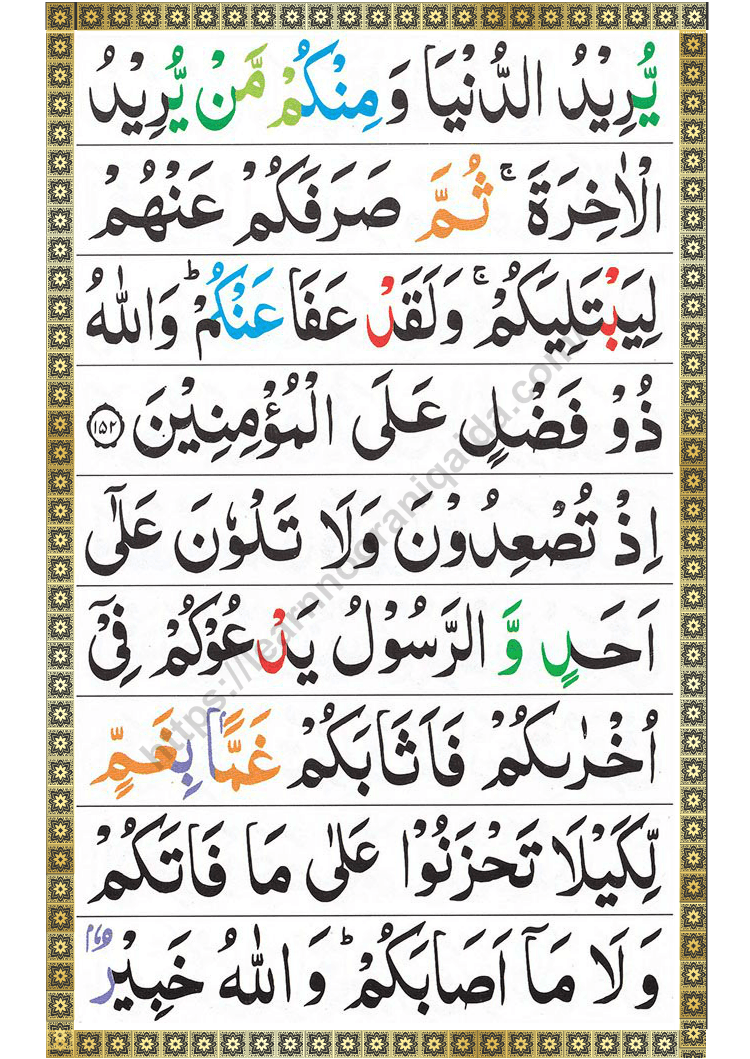 يُّرِيْدُ الدُّنْيَا وَ مِنْكُمْ مَّنْ يُّرِيْدُ
الْاٰخِرَةَ ۚ ثُمَّ صَرَفَكُمْ عَنْهُمْ
لِيَبْتَلِيَكُمْ ۚ وَلَقَدْ عَفَا عَنْكُمْ ؕ وَاللّٰهُ
ذُوْ فَضْلٍ عَلَى الْمُؤْمِنِيْنَ ﴿۱۵۲﴾
اِذْ تُصْعِدُوْنَ وَلَا تَلْوٗنَ عَلٰٓى
اَحَدٍ وَّ الرَّسُوْلُ يَدْعُوْكُمْ فِیْۤ
اُخْرٰىكُمْ فَاَثَابَكُمْ غَمًّۢا بِغَمٍّ
لِّكَيْلَا تَحْزَنُوْا عَلٰى مَا فَاتَكُمْ
وَلَا مَاۤ اَصَابَكُمْ ؕ وَاللّٰهُ خَبِيْرٌۢ
https://learnnooraniqaida.com/